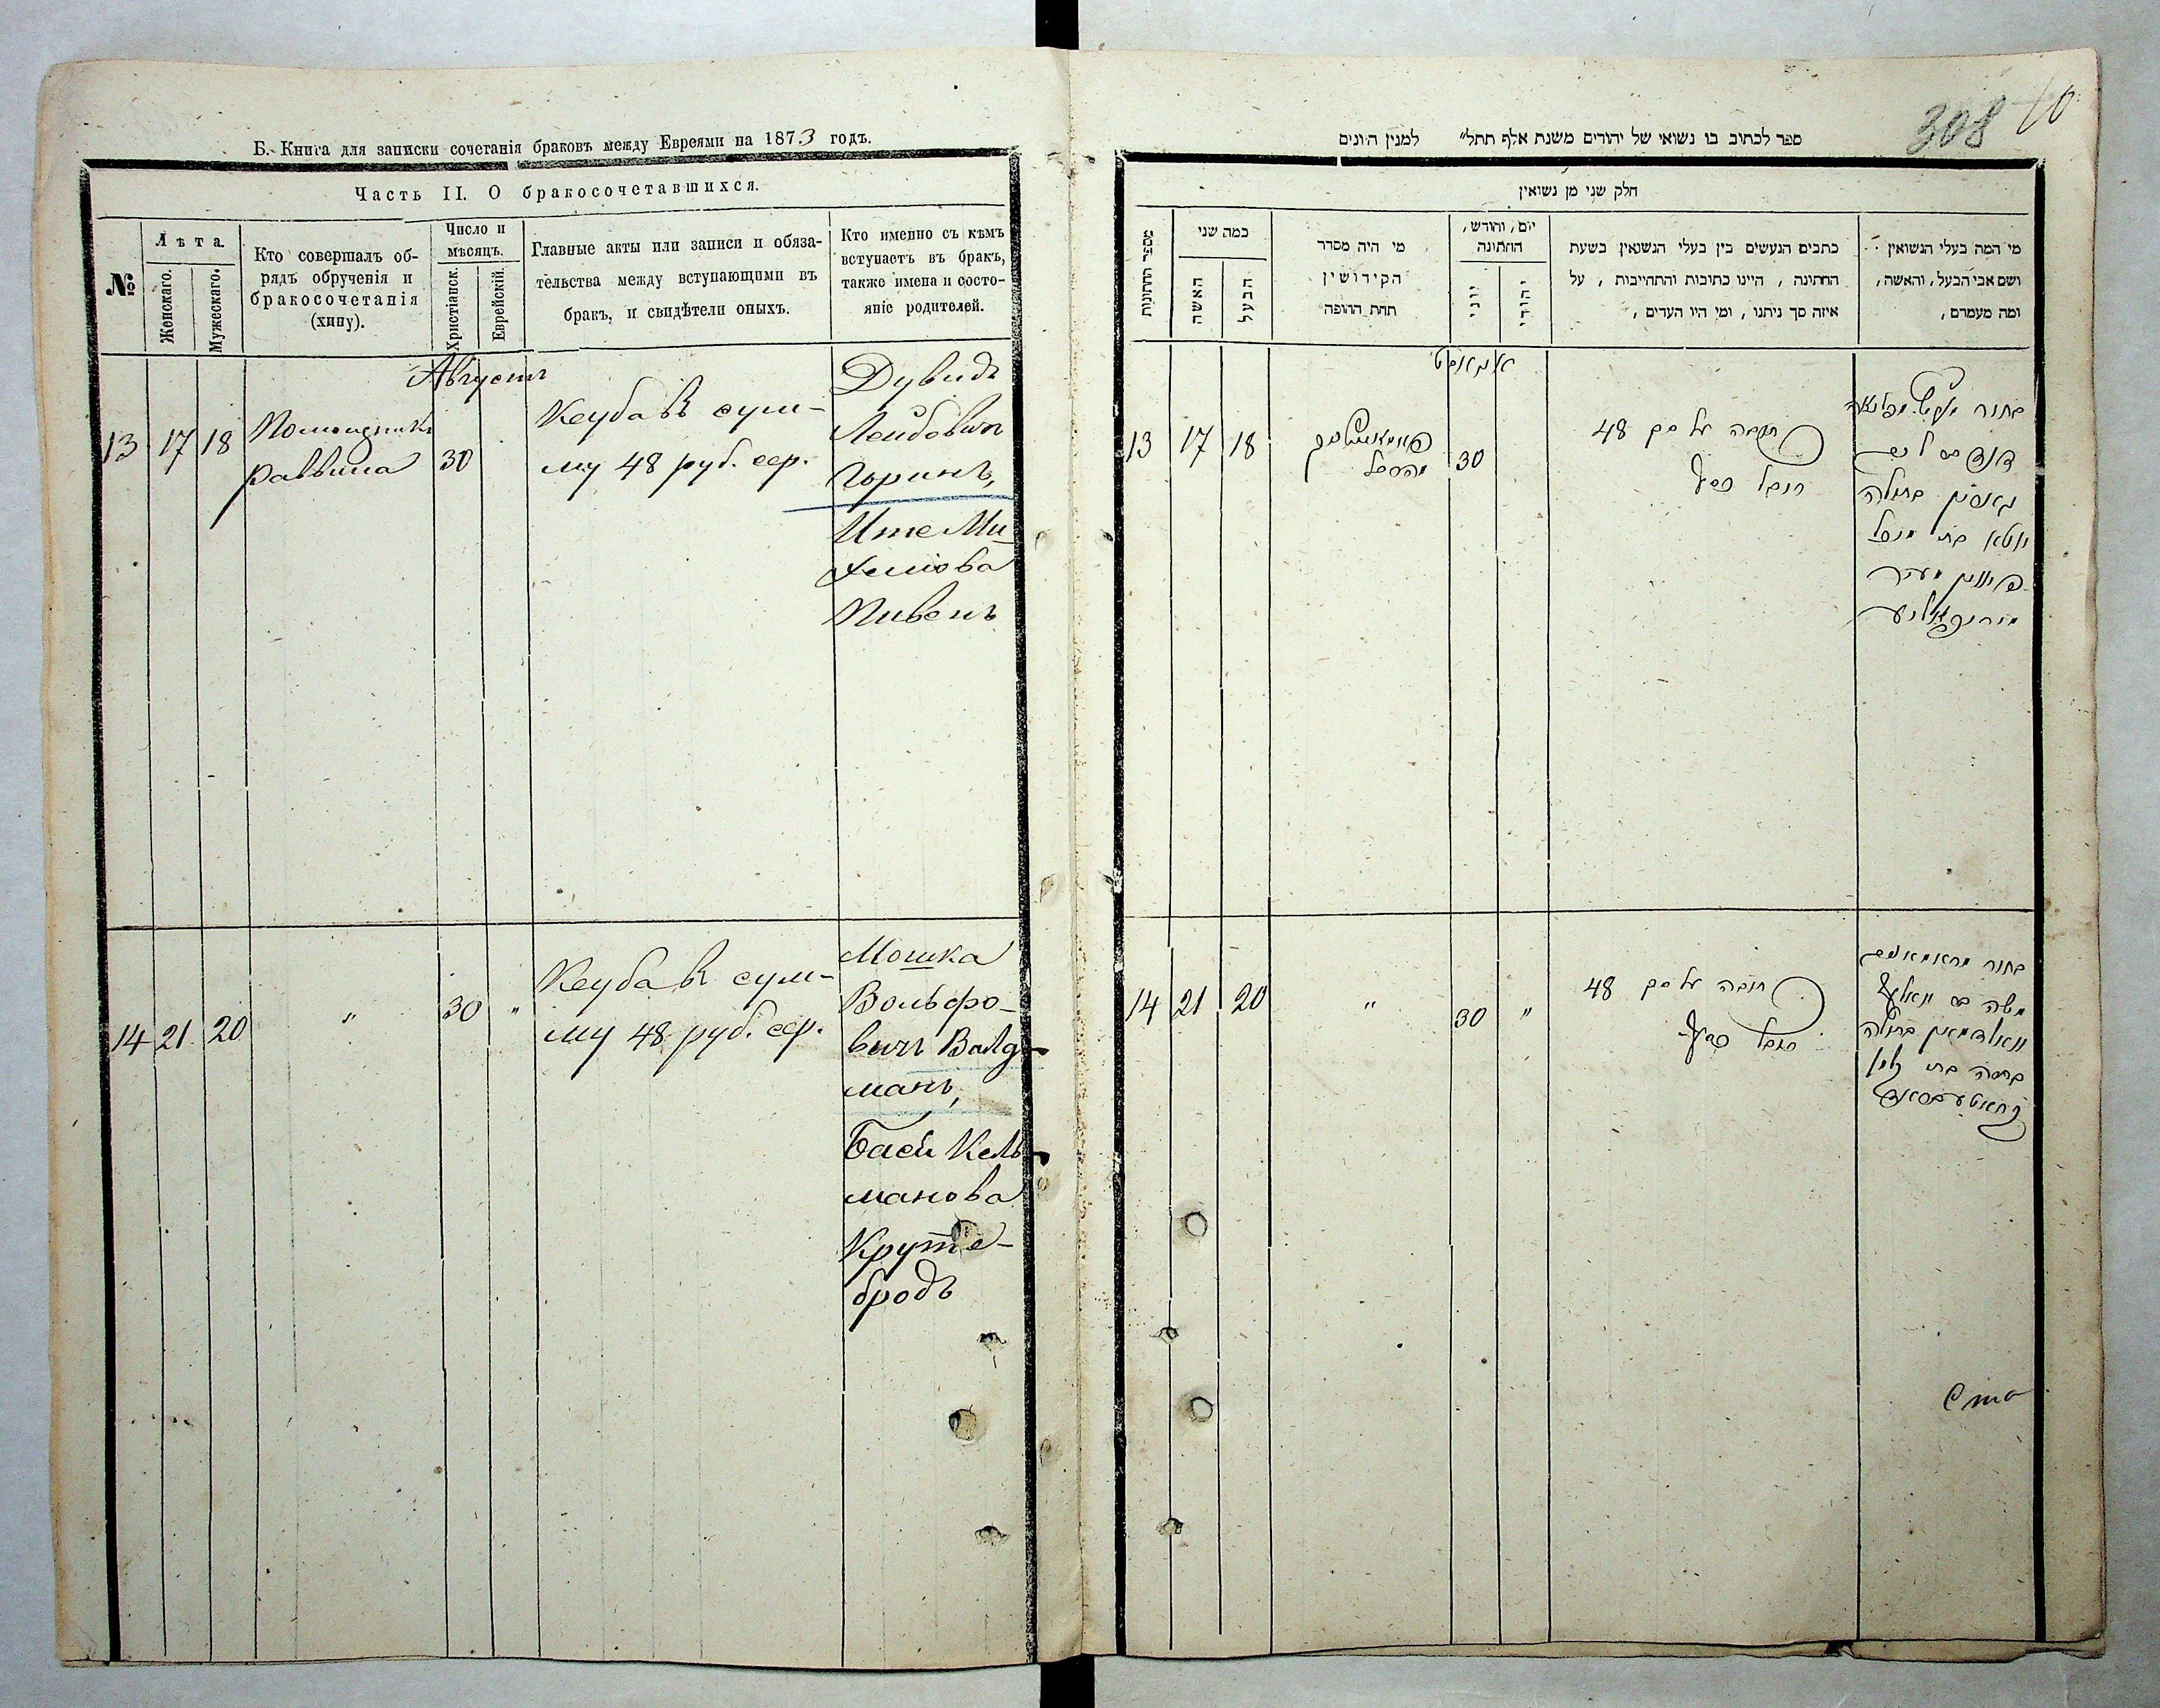 Б. Книга для записки сочетанія браковъ между Евреями на 1873 годъ.
Часть II. О бракосочетавшихся.
№
Лѣта
Женскаго.
Мужескаго.
Кто совершалъ об-
рядъ обрученія и
бракосочетанія
(хипу).
Число и
мѣсяцъ.
Христіанск.
Еврейскій.
Главные акты или записи и обяза-
тельства между вступающими въ
бракъ, и свидѣтели оныхъ.
Кто именно съ кѣмъ
вступаетъ въ бракъ,
также имена и состо-
яніе родителей.
Августъ
13 17 18
Помощникъ
раввина
30
Кеуба въ сум-
му 48 руб. сер.
Дувидъ
Лейбовичъ
Горинъ,
Ите Ми-
хелiова
Пивень
14 21 20 " 30 "
Кеуба въ сум-
му 48 руб. сер.
Мошка
Вольфо-
вичъ Валд-
манъ,
Баси Кель-
манова
Круте-
бродъ
308 10
ספר לכתוב בו נשואי של יהודים משנת אלף תתל״ למנין היונים
חלק שני מן נשואין
מספר החתונות
כמה שני
האשה
הבעל
מי היה מסדר
הקידושין
תחת החופה
יום, וחודש,
החתונה
יוני
יהודי
כתבים הנעשים בין בעלי הנשואין בשעת
החתונה, היינו כתובות והתחייבות, על
איזה סך ניתנו, ומי היו העדים,
מי המה בעלי הנשואין
ושם אבי הבעל, והאשה,
ומה מעמדם,
אוגוסט
13 17 18
30
כתובה על סך 48
רובל כסף
בחור
דוד בן ליב
בתולה
יוטא בת מיכל
14 21 20 " 30 "
כתובה על סך 48
רובל כסף
בחור
משה בן וואלף
וואלדמאן בתולה
באסה בת קלמן
Сто